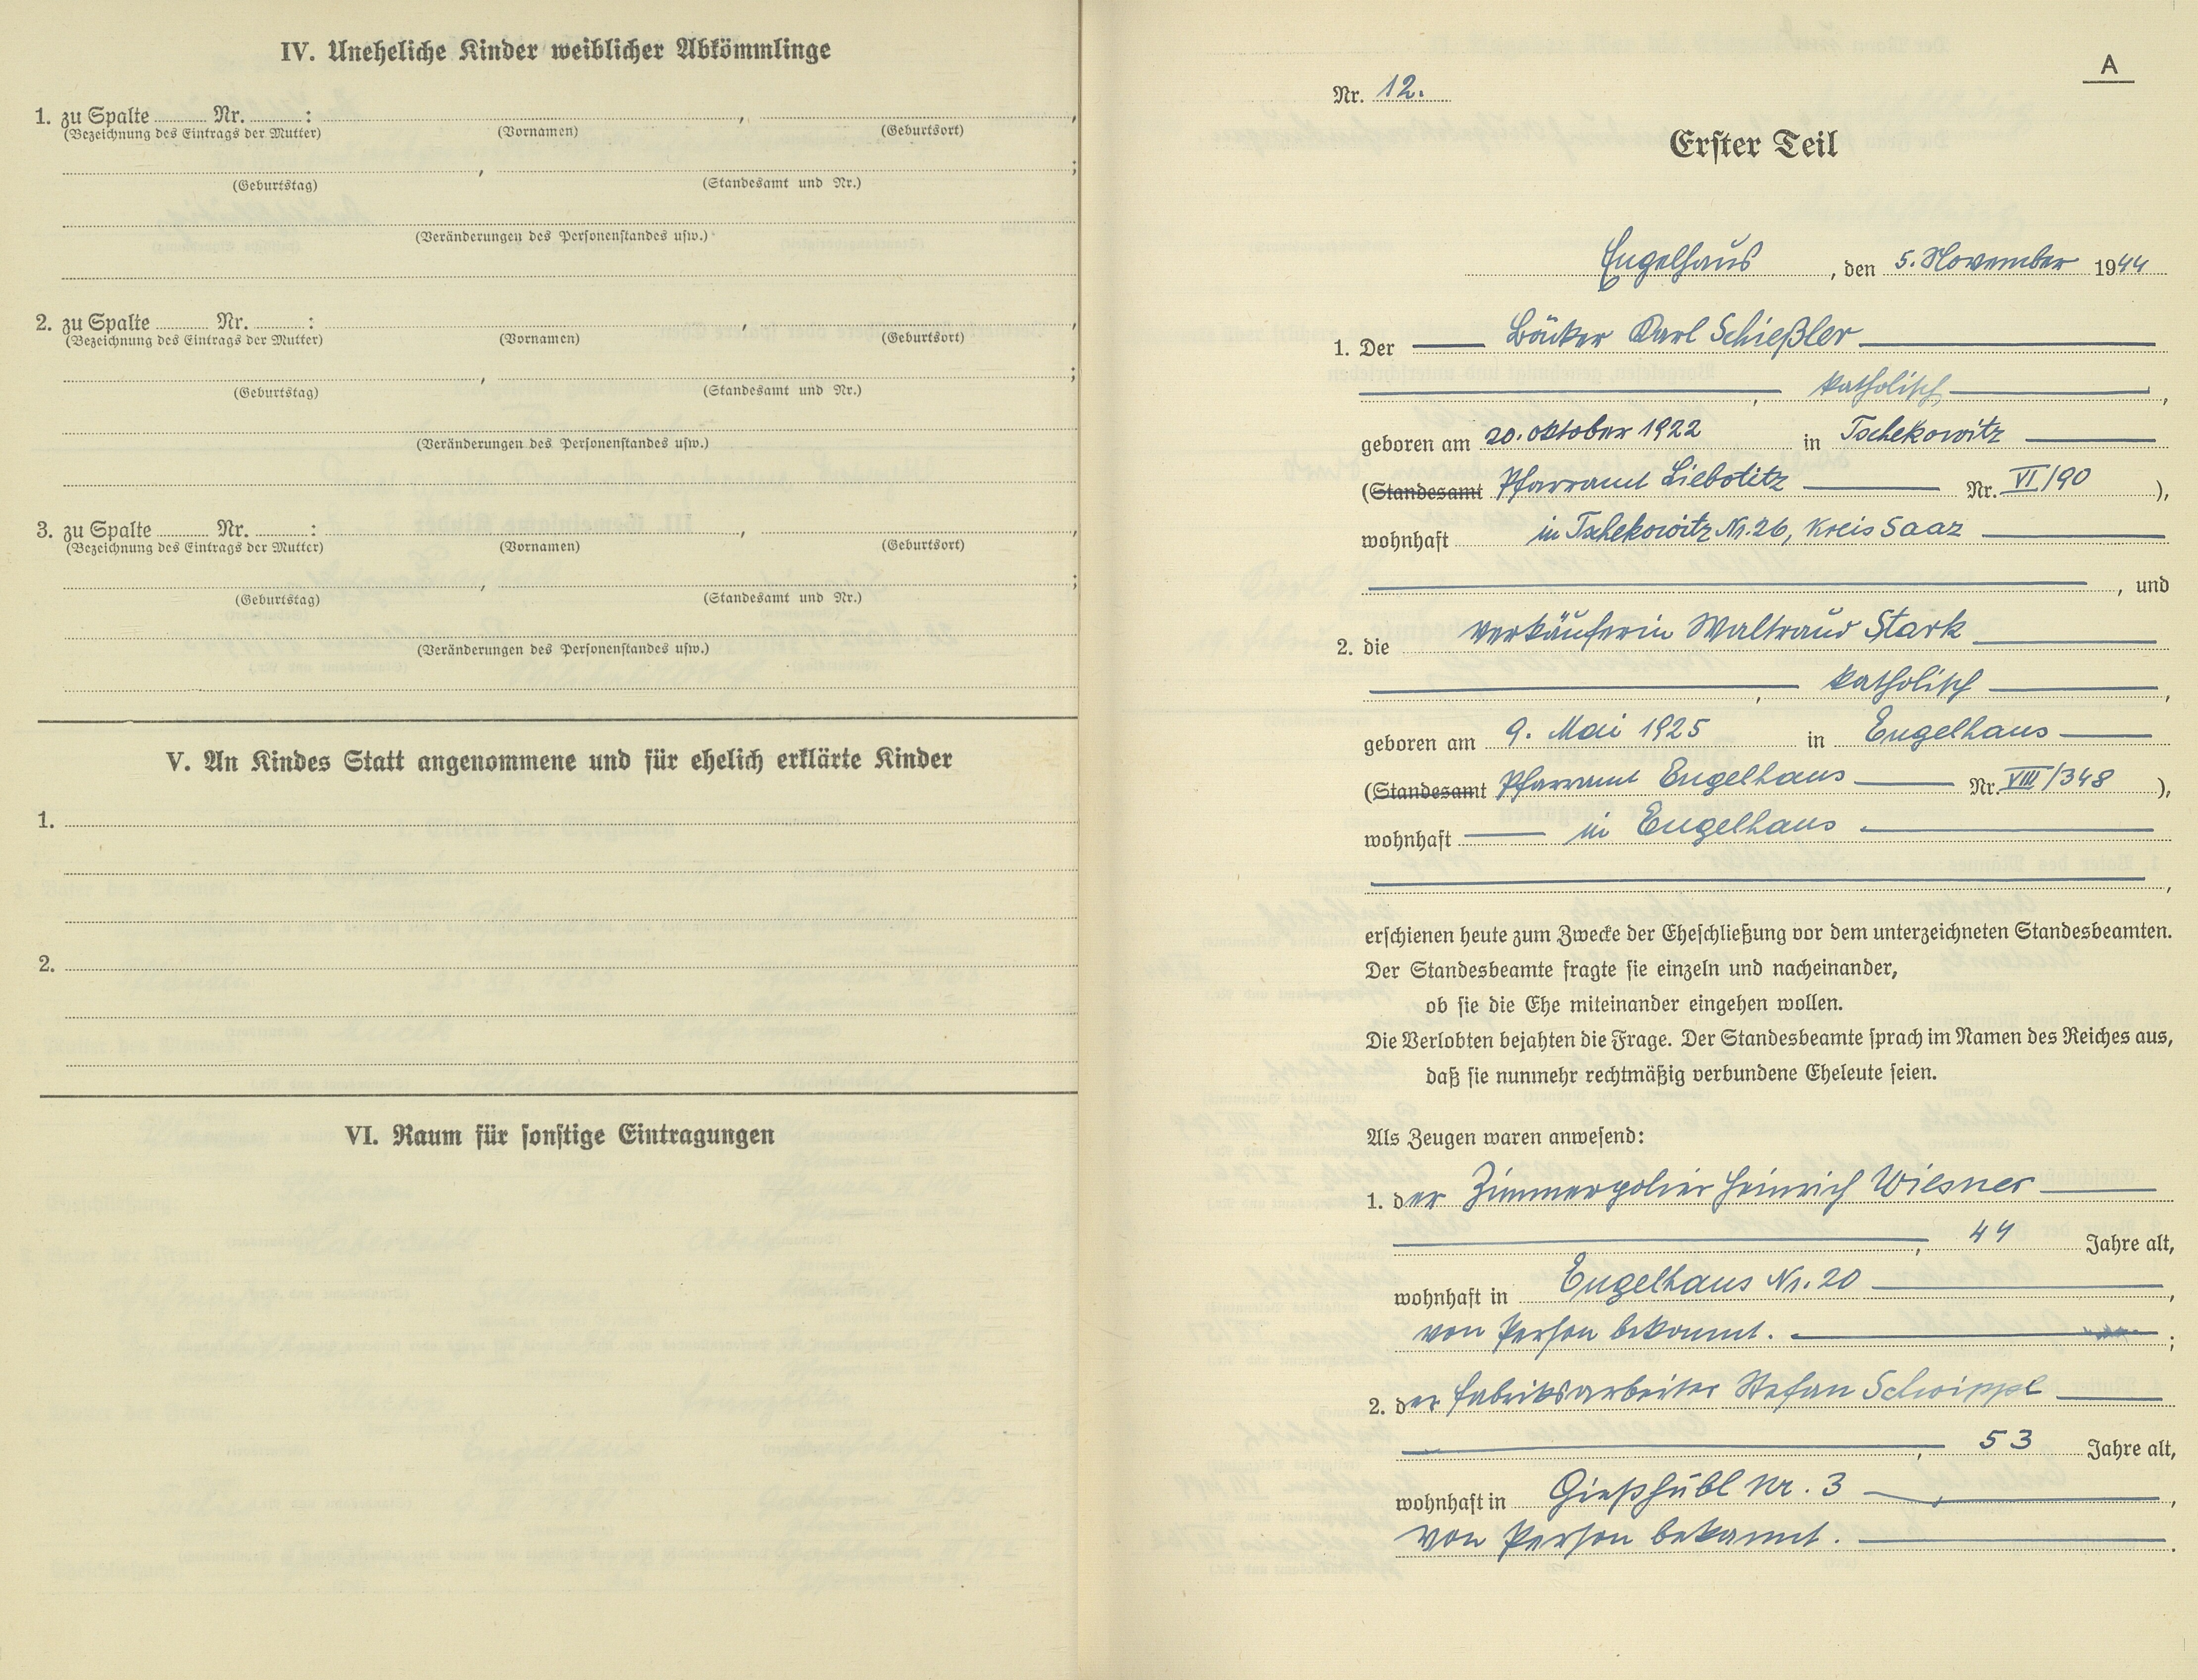 IV. Uneheliche Kinder weiblicher Abkömmlinge
1. zu Spalte ........ Nr. ........ : ........ , ........ ,
(Bezeichnung des Eintrags der Mutter) (Vornamen) (Geburtsort)
........ , ........ ;
(Geburtstag) (Standesamt und Nr.)
(Veränderungen des Personenstandes usw.)
2. zu Spalte ........ Nr. ........ : ........ , ........ ,
(Bezeichnung des Eintrags der Mutter) (Vornamen) (Geburtsort)
........ , ........ ;
(Geburtstag) (Standesamt und Nr.)
(Veränderungen des Personenstandes usw.)
3. zu Spalte ........ Nr. ........ : ........ , ........ ,
(Bezeichnung des Eintrags der Mutter) (Vornamen) (Geburtsort)
........ , ........ ;
(Geburtstag) (Standesamt und Nr.)
(Veränderungen des Personenstandes usw.)
V. An Kindes Statt angenommene und für ehelich erklärte Kinder
1.
2.
VI. Raum für sonstige Eintragungen
A
Nr. 12.
Erster Teil
Engelhaus, den 5. November 1944
1. Der Bäcker Karl Schießler
, katholisch,
geboren am 20. Oktober 1922 in Tschekowitz
(Standesamt Pfarramt Liebotitz Nr. VI/90 ),
wohnhaft in Tschekowitz Nr. 26, Kreis Saaz
, und
2. die Verkäuferin Waltraud Stark
, katholisch,
geboren am 9. Mai 1925 in Engelhaus
(Standesamt Pfarramt Engelhaus Nr. VIII/348 ),
wohnhaft in Engelhaus
,
erschienen heute zum Zwecke der Eheschließung vor dem unterzeichneten Standesbeamten.
Der Standesbeamte fragte sie einzeln und nacheinander,
ob sie die Ehe miteinander eingehen wollen.
Die Verlobten bejahten die Frage. Der Standesbeamte sprach im Namen des Reiches aus,
daß sie nunmehr rechtmäßig verbundene Eheleute seien.
Als Zeugen waren anwesend:
1. der Zimmerpolier Heinrich Wiesner
, 44 Jahre alt,
wohnhaft in Engelhaus Nr. 20 ,
von Person bekannt. ;
2. der Fabriksarbeiter Stefan Schwippl
, 53 Jahre alt,
wohnhaft in Gießhübl Nr. 3 ,
von Person bekannt. .